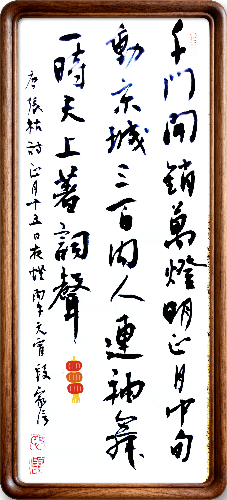 千門開鎖萬燈明正月中旬
動京城三百内人連袖舞
一時天上著詞聲
唐張祜詩正月十五日夜燈丙午元宵段